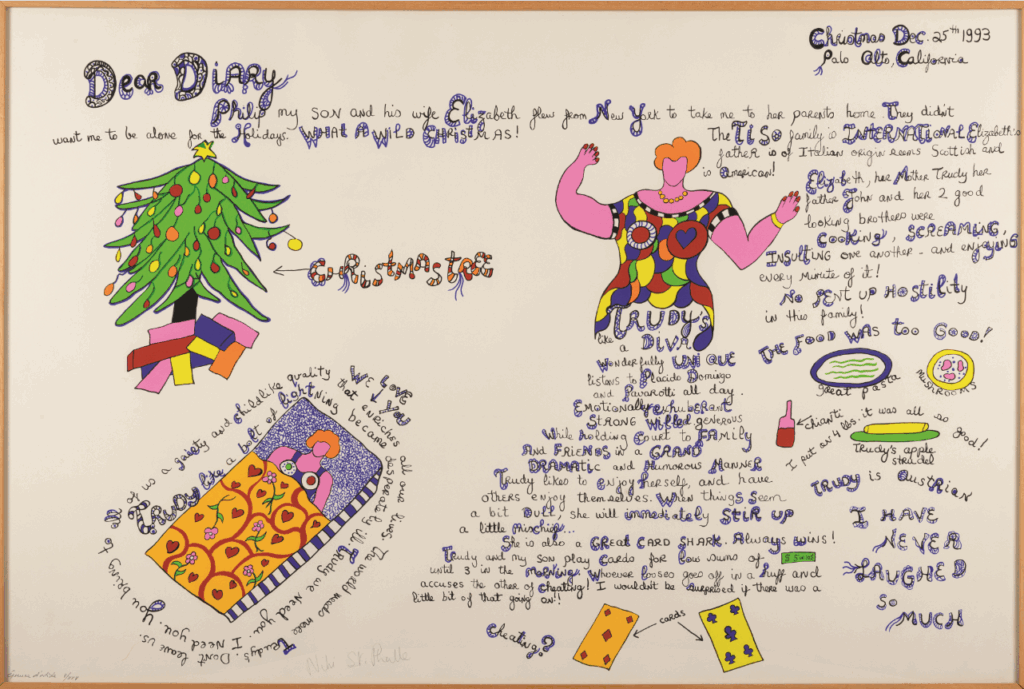 Christmas Dec. 25th 1993
Palo Alto, California
Dear Diary
Philip my son and his wife Elizabeth flew from New York to take me to her parents home. They didn't
want me to be alone for the Holidays. What a Wild Christmas!
The Tiso family is International Elizabeth's
father is of Italian origin seems Scottish and
is american!
Elizabeth, her Mother Trudy her
father John and her 2 good
looking brothers were
Cooking, Screaming,
Insulting one another - and enjoying
every minute of it!
No pent up Hostility
in this family!
The food was too good!
great pasta
mushrooms
chianti - it was all so good!
I put on 4 lbs
Trudy's apple
strudel
Trudy is Austrian
I have
never
laughed
so
much
Christmas tree
Trudy's
like
a Diva
Wonderfully Unique
listens to Placido Domingo
and Pavarotti all day.
Emotionally exhuberant
Strong Willed generous
While holding Court to Family
And Friends in a Grand
Dramatic and Humorous Manner
Trudy likes to enjoy herself, and have
others enjoy themselves. When things seem
a bit Dull, she will immediately Stir up
a little Mischief...
She is also a Great Card Shark. Always wins!
Trudy and my son play Cards for low sums of
until 3 in the morning. Whoever looses goes off in a huff and
accuses the other of cheating! I wouldn't be surprised if there was a
little bit of that going on!!
Cheating?
cards
We Love You
Trudy like a bolt of lightning became desperately ill. Trudy we need you. I Need you.
You bring to all of us a gaiety and childlike quality that enriches all our lives. The world needs more Trudys. Don't leave us.
Niki St. Phalle